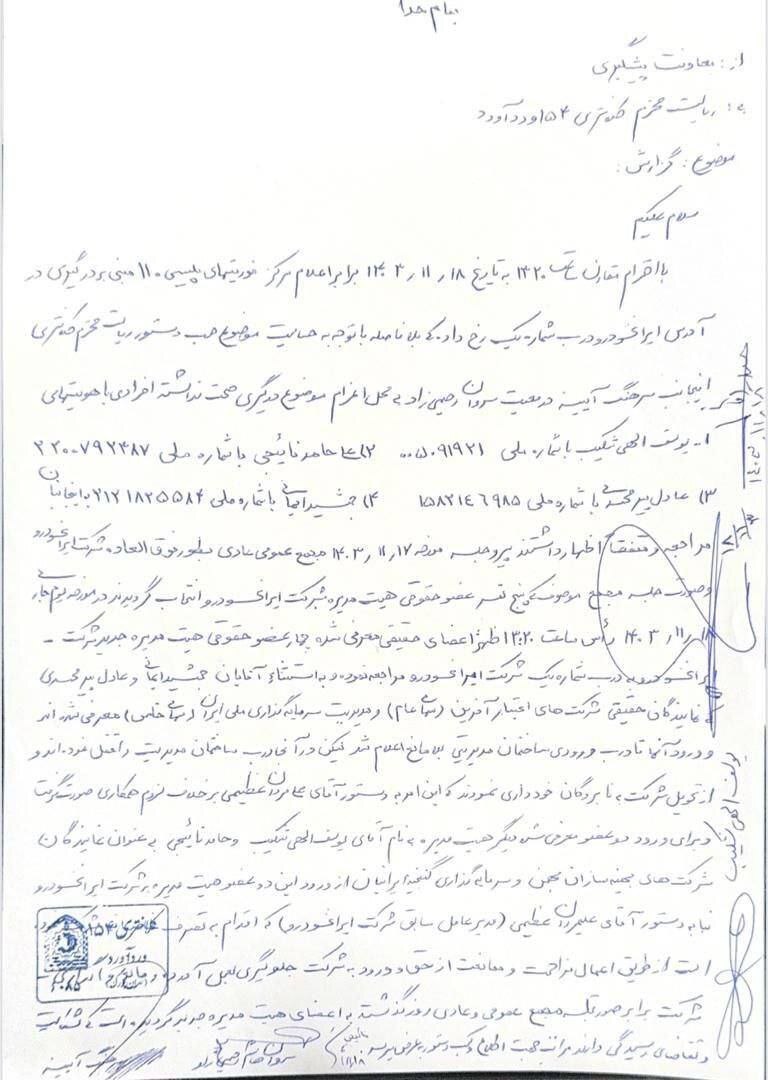 بنام خدا
از: معاونت پیشگیری
به: ریاست محترم کلانتری ۱۵۴ وردآورد
موضوع: گزارش:
سلام علیکم
با احترام مقارن ساعت ۱۳۲۰ به تاریخ ۱۸/۱۱/۱۴۰۳ برابر اعلام مرکز فوریتهای پلیسی ۱۱۰ مبنی بر درگیری در
آدرس ایرانخودرو درب شماره یک رخ داده که بلافاصله با توجه به حساسیت موضوع حسب دستور ریاست محترم کلانتری
اینجانب سرهنگ آیینه در معیت سروان رحیمی راد به محل اعزام موضوع درگیری صحت نداشته افرادی با هویتهای
۱- یوسف الهی شکیب با شماره ملی ۰۰۵۰۹۱۹۲۱ ۲) حامد نائیجی با شماره ملی ۲۲۰۰۷۹۲۴۸۷
۳) عادل پیرمحمدی با شماره ملی ۱۵۸۲۱۴۶۹۸۵ ۴) جمشید ایمانی با شماره ملی ۲۱۲۱۸۲۵۵۸۴ به اینجانبان
مراجعه و متفقاً اظهار داشتند پیرو جلسه مورخه ۱۷/۱۱/۱۴۰۳ مجمع عمومی عادی بطور فوق العاده شرکت ایرانخودرو
و صورت جلسه مجمع موصوف که پنج نفر عضو حقوقی هیت مدیره شرکت ایرانخودرو انتخاب گردیدند در مورخه یوم جاری
۱۸/۱۱/۱۴۰۳ رأس ساعت ۱۳:۲۰ ظهر اعضای حقیقی معرفی شده چهار عضو حقوقی هیت مدیره جدید شرکت -
ایرانخودرو به درب شماره یک شرکت ایرانخودرو مراجعه نموده و به استثناء آقایان جمشید ایمانی و عادل پیرمحمدی
که نمایندگان حقیقی شرکت های اعتبار آفرین (سهامی عام) و مدیریت سرمایه گذاری ملی ایران (سهامی خاص) معرفی شده اند
و ورود آنها تا درب ورودی ساختمان مدیریتی بلامانع اعلام شد لیکن در آنجا درب ساختمان مدیریت را قفل نموده اند و
از تحویل شرکت به نامبردگان خودداری نمودند که این امر به دستور آقای علیمردان عظیمی برخلاف لزوم همکاری صورت گرفت
و برای ورود دو عضو معرفی شده دیگر هیت مدیره به نام آقای یوسف الهی شکیب و حامد نائیجی به عنوان نمایندگان
شرکت های بهینه سازان بهمن و سرمایه گذاری گنجینه ایرانیان از ورود این دو عضو هیت مدیره به شرکت ایرانخودرو
بنا به دستور آقای علیمردان عظیمی (مدیر عامل سابق شرکت ایرانخودرو) که اقدام به تصرف
است از طریق اعمال مزاحمت و ممانعت از حق و ورود به شرکت جلوگیری بعمل آمده و
شرکت برابر صورتجلسه مجمع عمومی و عادی روز گذشته به اعضای هیت مدیره جدید گردیده است که شکایت
و تقاضای رسیدگی دارند مراتب جهت اطلاع و کسب دستور بعرض میرسد
سرهنگ آیینه
یوسف الهی شکیب
کلانتری ۱۵۴
وردآورد